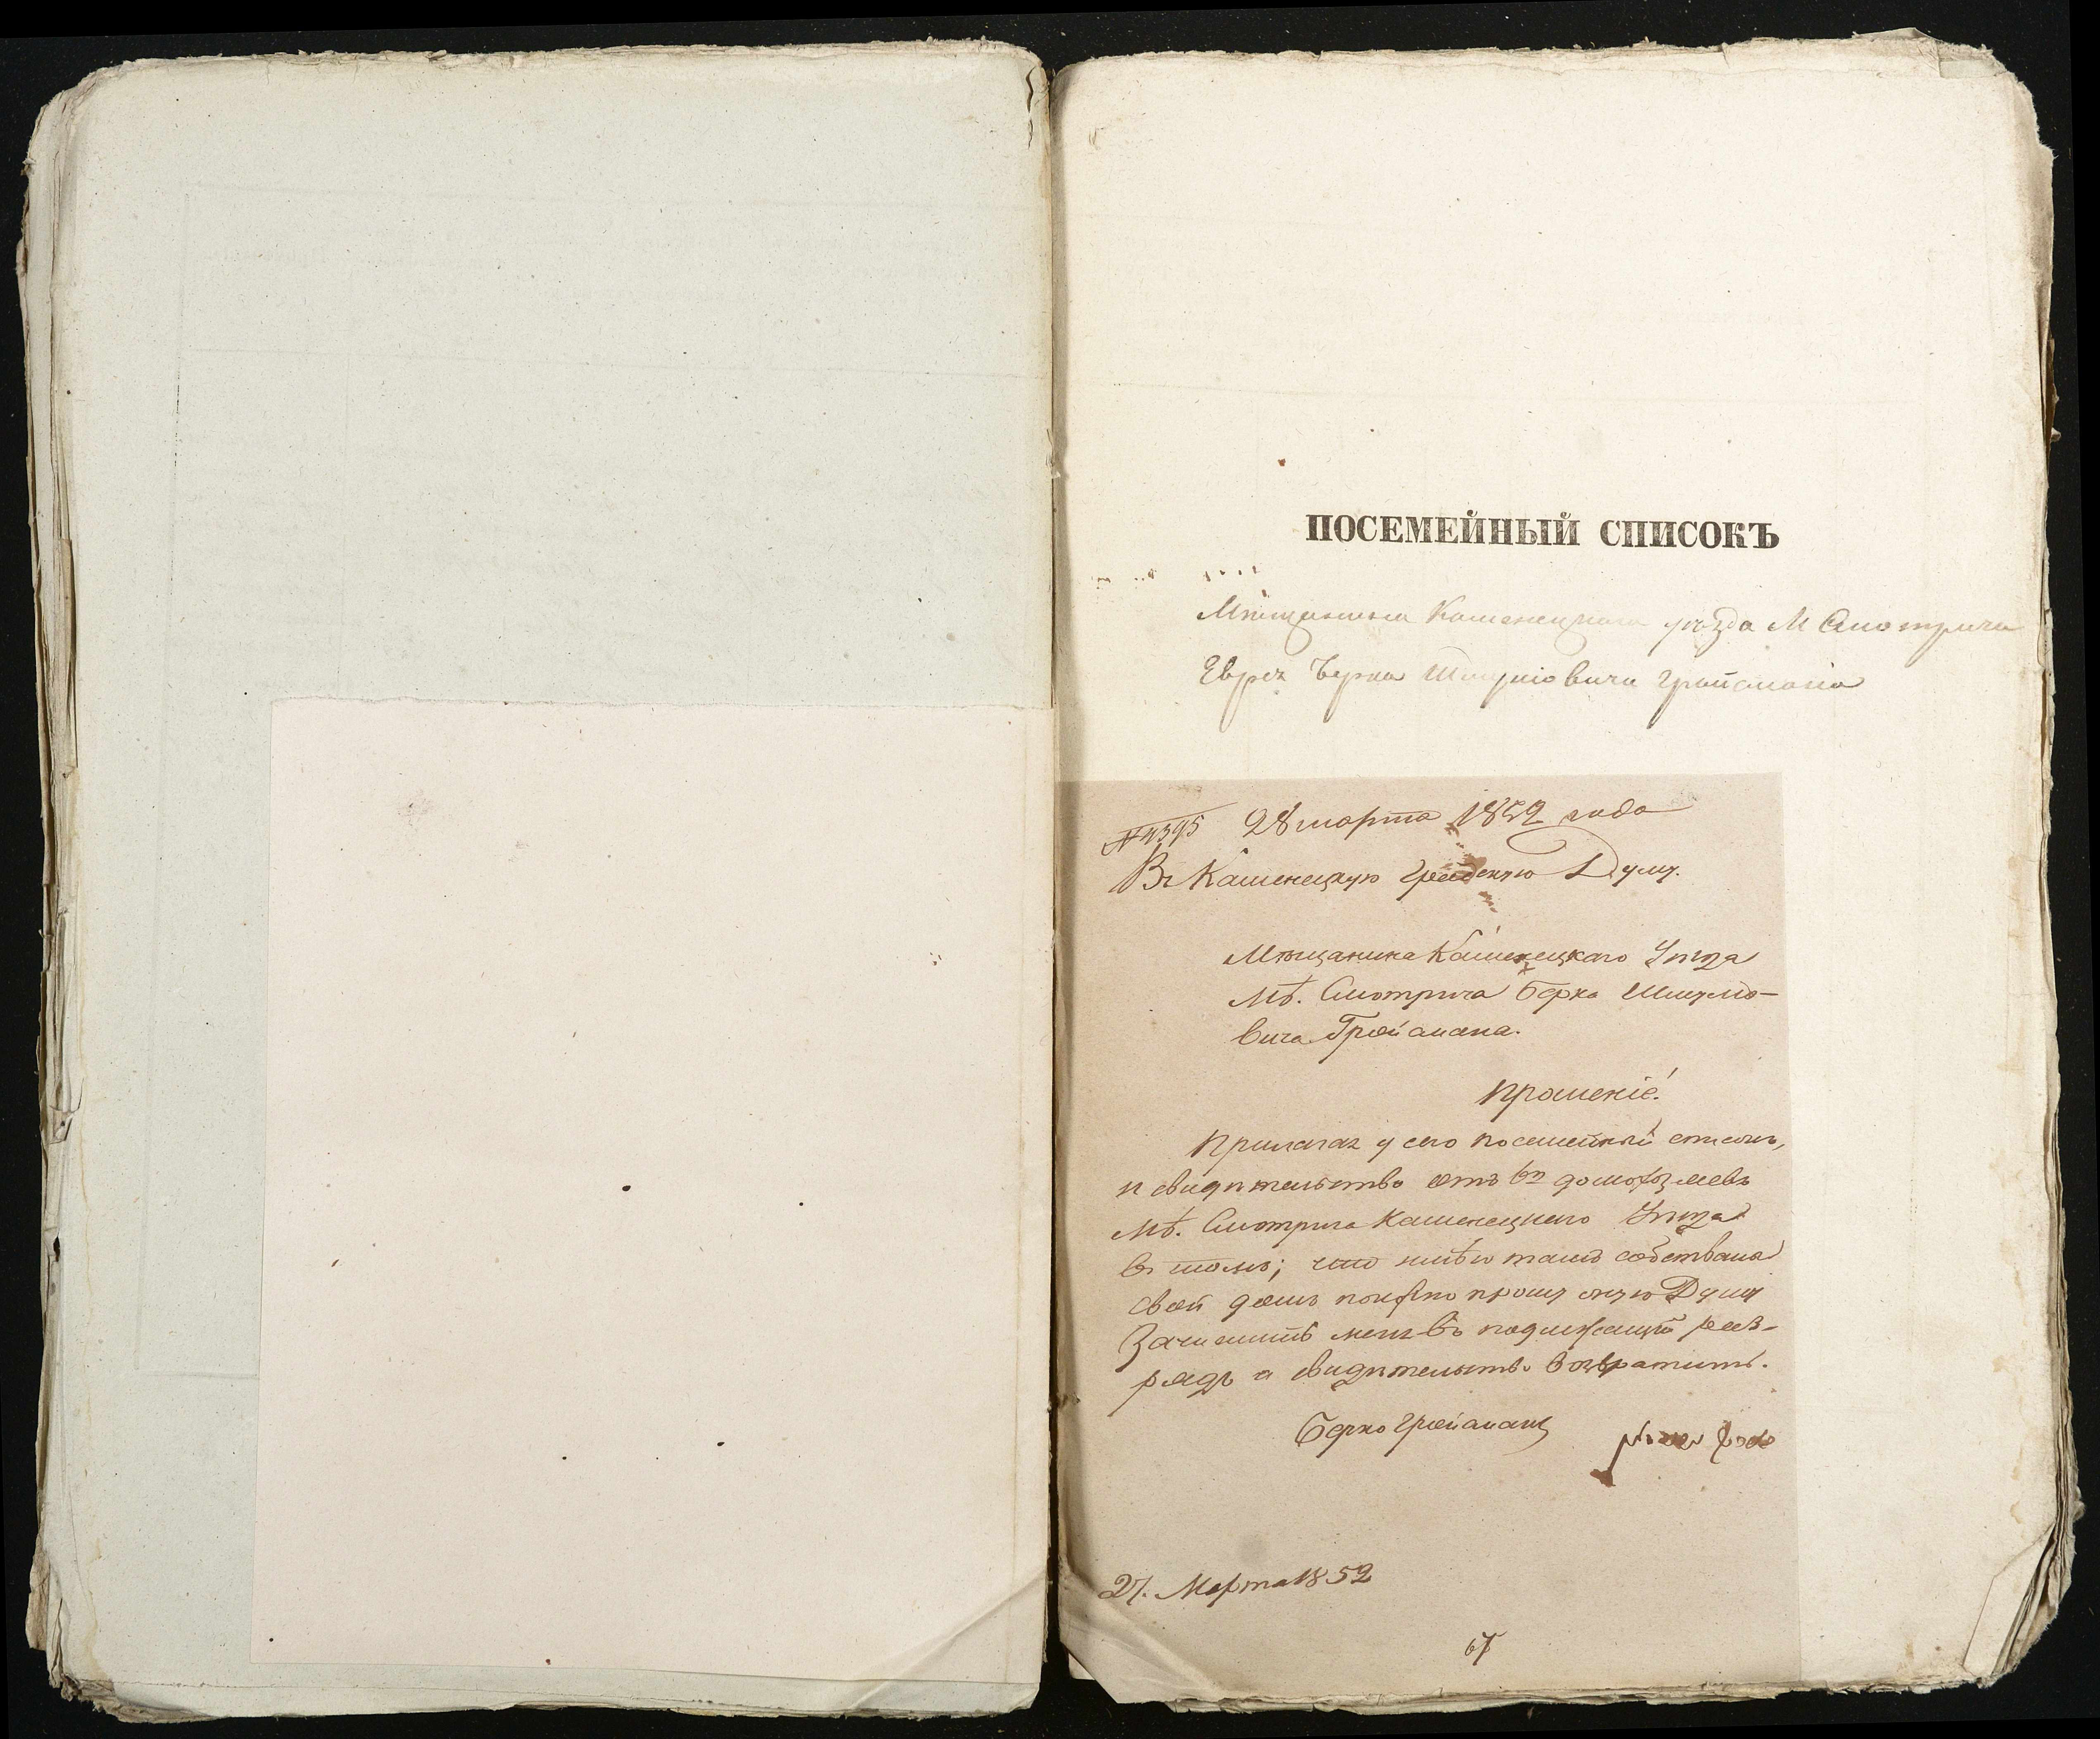 ПОСЕМЕЙНЫЙ СПИСОКЪ
Мѣщанина Каменецкаго уѣзда М Смотрича
Еврея Берка Шмулiовича Гройсмана
№ 4395 28 марта 1852 года
Въ Каменецкую Градскую Думу.
Мѣщанина Каменецкаго Уѣзда
Мѣ. Смотрича Берка Шмулiо-
вича Гройсмана.
Прошенiе!
Прилагая у сего посемейный списокъ,
и свидѣтельство отъ 6ти домохозяевъ
Мѣ. Смотрича Каменецкаго Уѣзда
въ томъ; что имѣю тамъ собственый
свой домъ покорно прошу оную Думу
Зачислить меня въ подлежащiй раз-
рядъ а свидѣтельство возвратить.
Берко Гройсманъ
27. Марта 1852
67